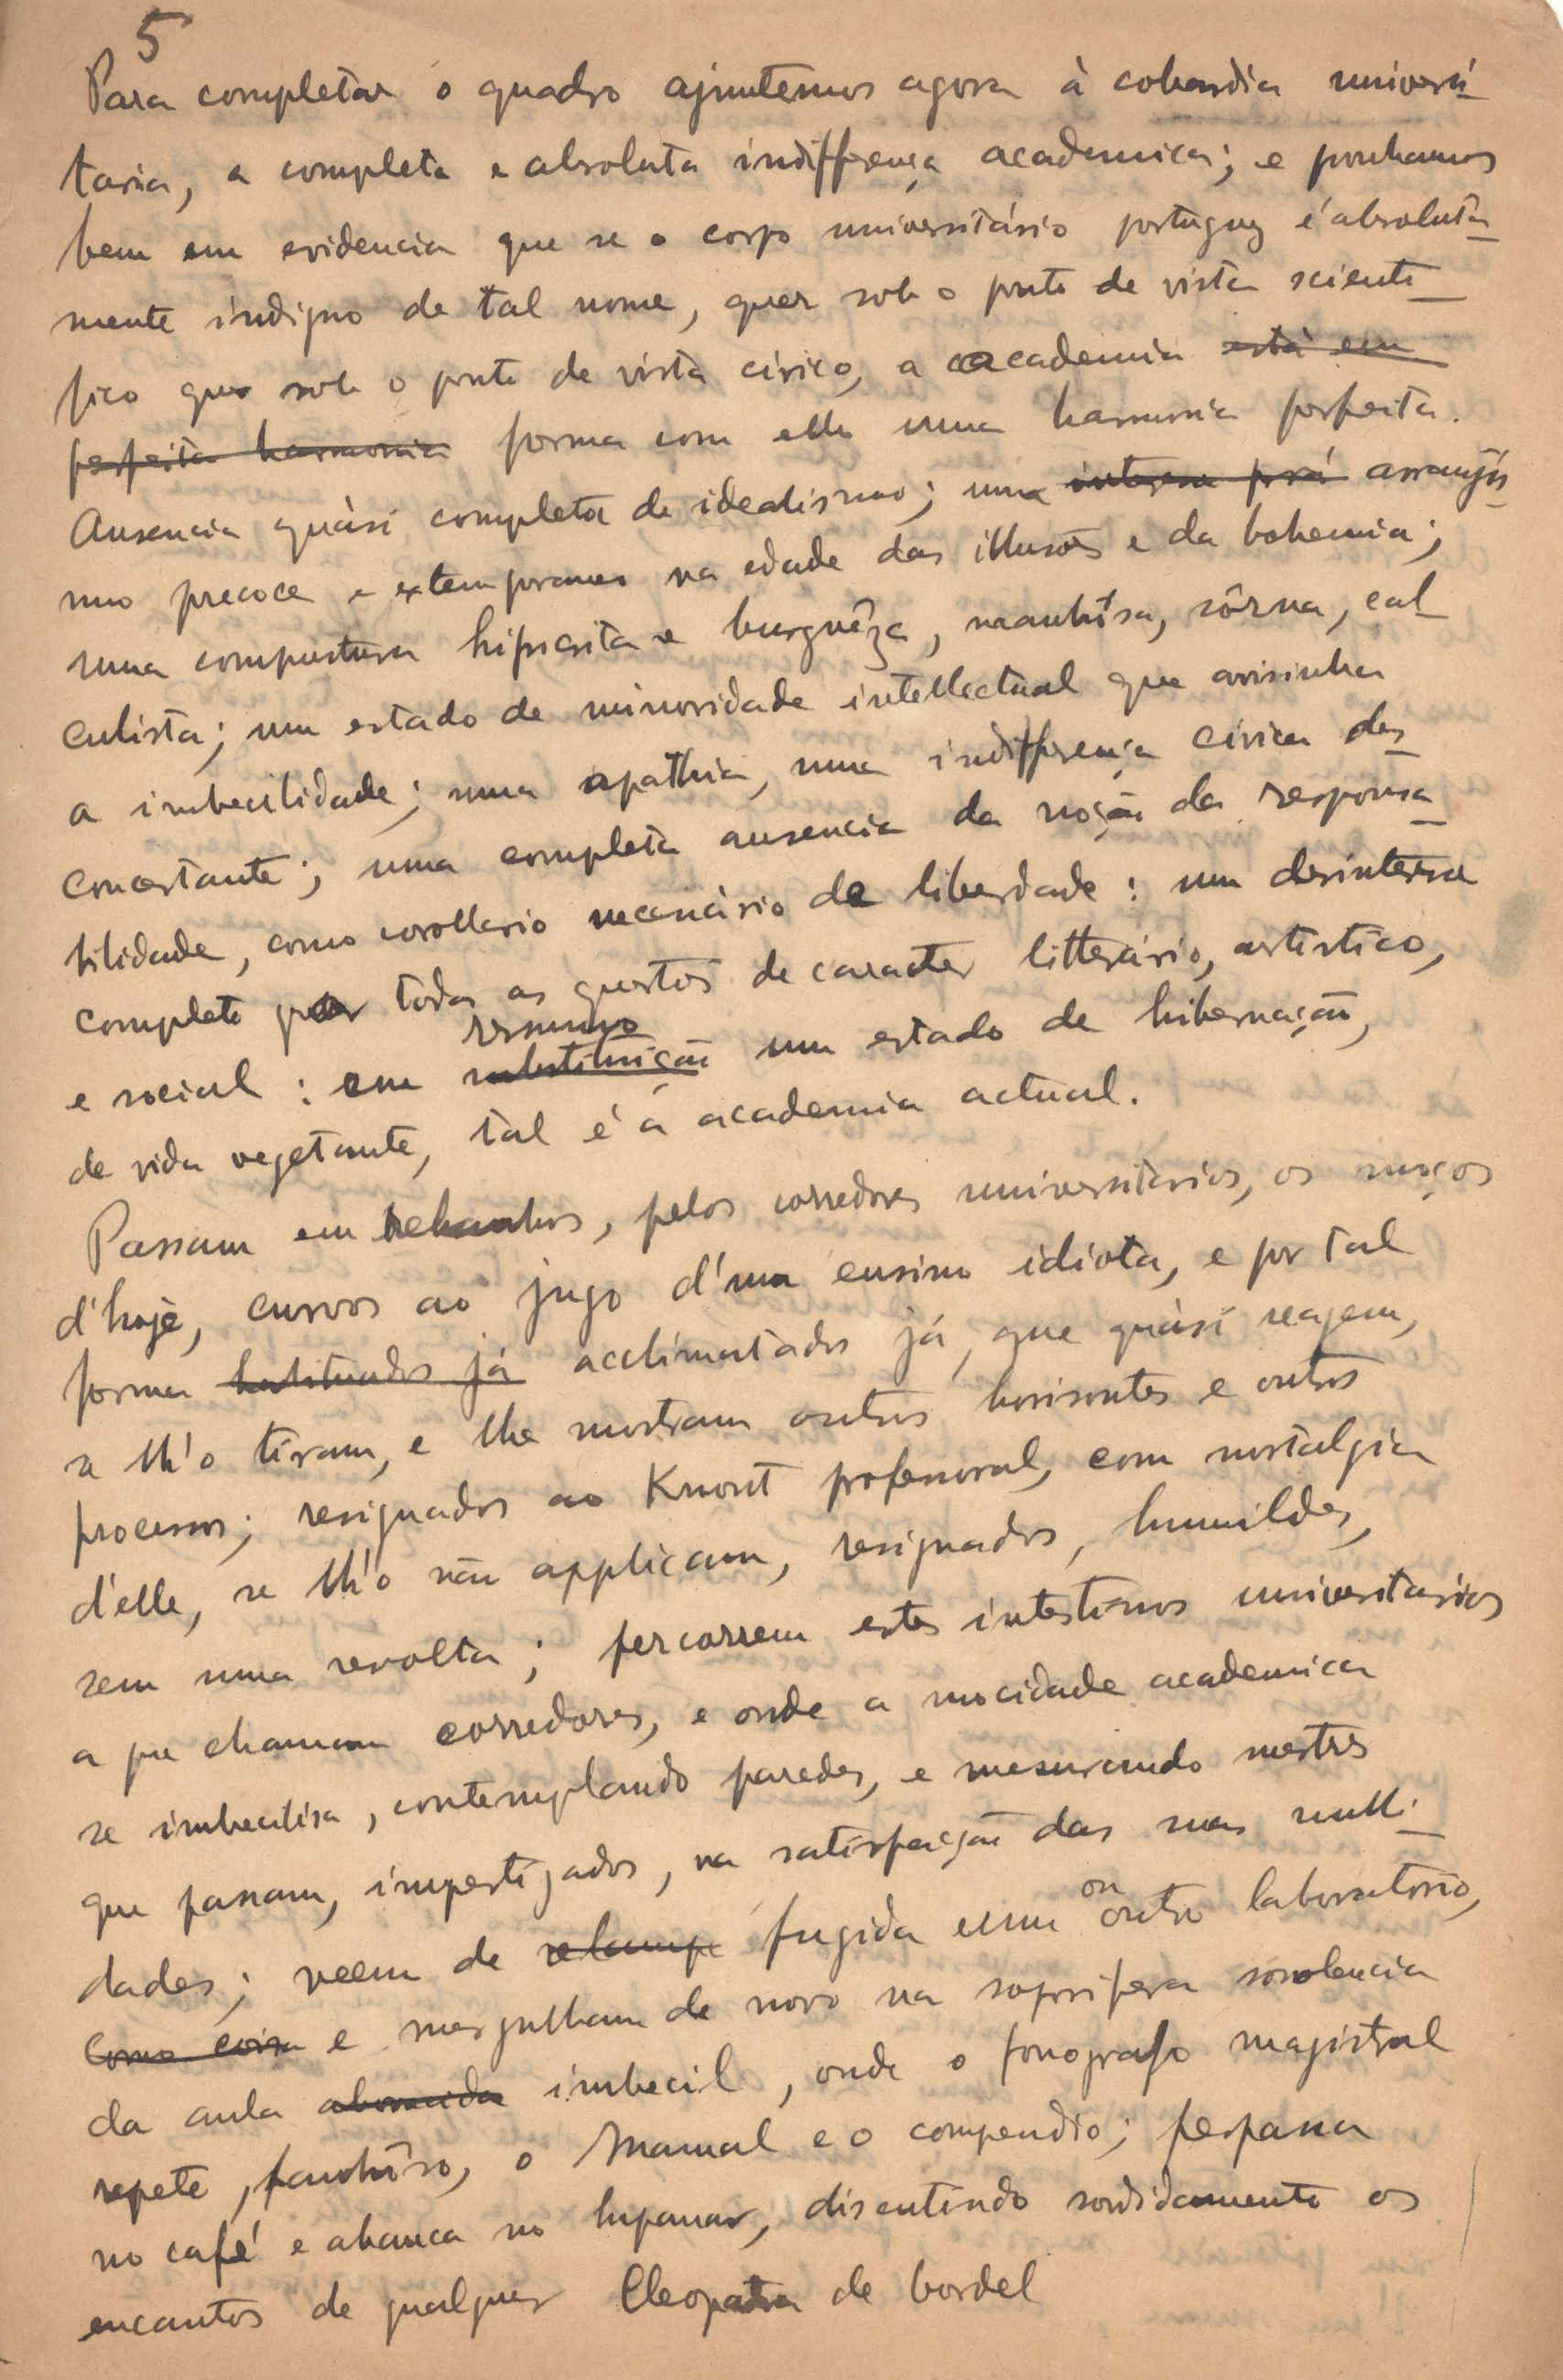 5
Para completar o quadro ajuntemos agora à cobardia universi-
taria, a completa e absoluta indifferença academica; e ponhamos
bem em evidencia que se o corpo universitário portuguez é absoluta-
mente indigno de tal nome, quer sob o ponto de vista scienti-
fico quer sob o ponto de vista civico, a academia está em
perfeita harmonia forma com elle uma harmonia perfeita.
Ausencia quàsi completa de idealismo; um arranjis-
mo precoce e extemporaneo na edade das illusões e da bohemia;
uma compostura hipocrita e burguêza, manhósa, sôrna, cal-
culista; um estado de minoridade intellectual que avisinha
a imbecilidade; uma apathia, uma indifferença civica des-
concertante; uma completa ausencia da noção da responsa-
bilidade, como corollario necessàrio de liberdade: um desinteresse
completo por todas as questões de caracter litterário, artistico,
e social: em substituição resumo um estado de hibernação,
de vida vegetante, tal é a academia actual.
Passam em rebanhos, pelos corredores universitarios, os moços
d'hoje, curvos ao jugo d'um ensino idiota, e por tal
forma habituados já acclimatados já, que quàsi reagem,
se lh'o tiram, e lhe mostram outros horisontes e outros
processos; resignados ao Knout professoral, com nostalgia
d'elle, se lh'o não applicam, resignados, humildes,
sem uma revolta; percorrem estes intestinos universitarios
a que chamam corredores, e onde a mocidade academica
se imbecilisa, contemplando paredes, e mesurando mestres
que passam, impertigados, na satisfação das suas nulli-
dades; veem de relampe fugida a um ou outro laboratorio,
Como coisa e mergulham de novo na soporifera sonolencia
da aula aborrecida imbecil, onde o fonografo magistral
repete, fanhôso, o Manual e o compendio; perpassa
no café e abanca no lupanar, discutindo sordidamente os
encantos de qualquer Cleopatra de bordel